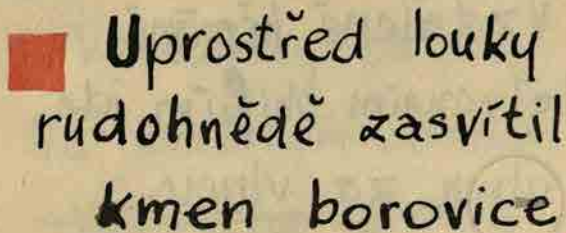 Uprostřed louky
rudohnědě zasvítil
kmen borovice